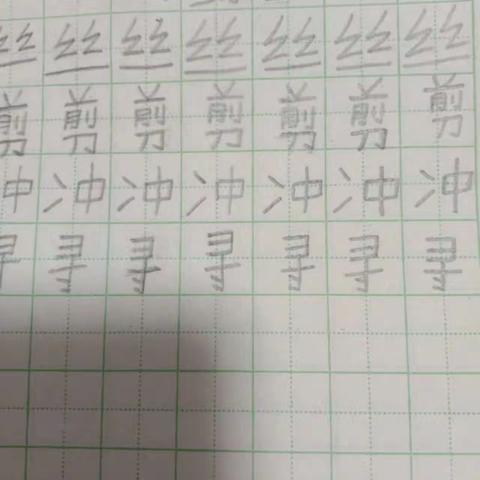 丝丝丝丝丝丝丝
剪剪剪剪剪剪剪
冲冲冲冲冲冲冲
寻寻寻寻寻寻寻